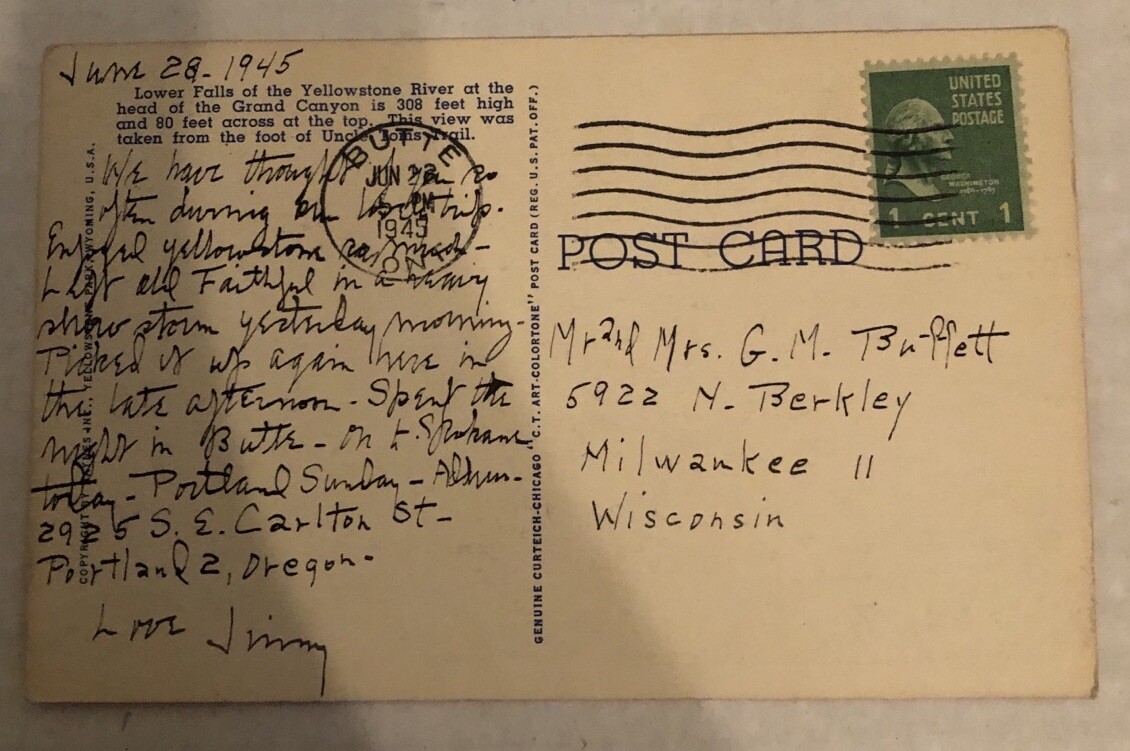 June 28 - 1945
Lower Falls of the Yellowstone River at the
head of the Grand Canyon is 308 feet high
and 80 feet across at the top. This view was
taken from the foot of Uncle Toms Trail.
We have thought of you so
often during our trip.
Enjoyed yellowstone so much -
Left old Faithful in a heavy
snow storm yesterday morning -
Picked it up again here in
the late afternoon - Spent the
night in Butte - on to Spokane
today - Portland Sunday -
2925 S. E. Carlton St -
Portland 2, Oregon -
Love Jimmy
COPYRIGHT BY INC., YELLOWSTONE PARK, WYOMING, U.S.A.
BUTTE
JUN
PM
1945
MONT
GENUINE CURTEICH-CHICAGO "C.T. ART-COLORTONE" POST CARD (REG. U.S. PAT. OFF.)
UNITED
STATES
POSTAGE
GEORGE
WASHINGTON
1 CENT 1
POST CARD
Mr and Mrs. G. M. Buffett
5922 N. Berkley
Milwaukee 11
Wisconsin